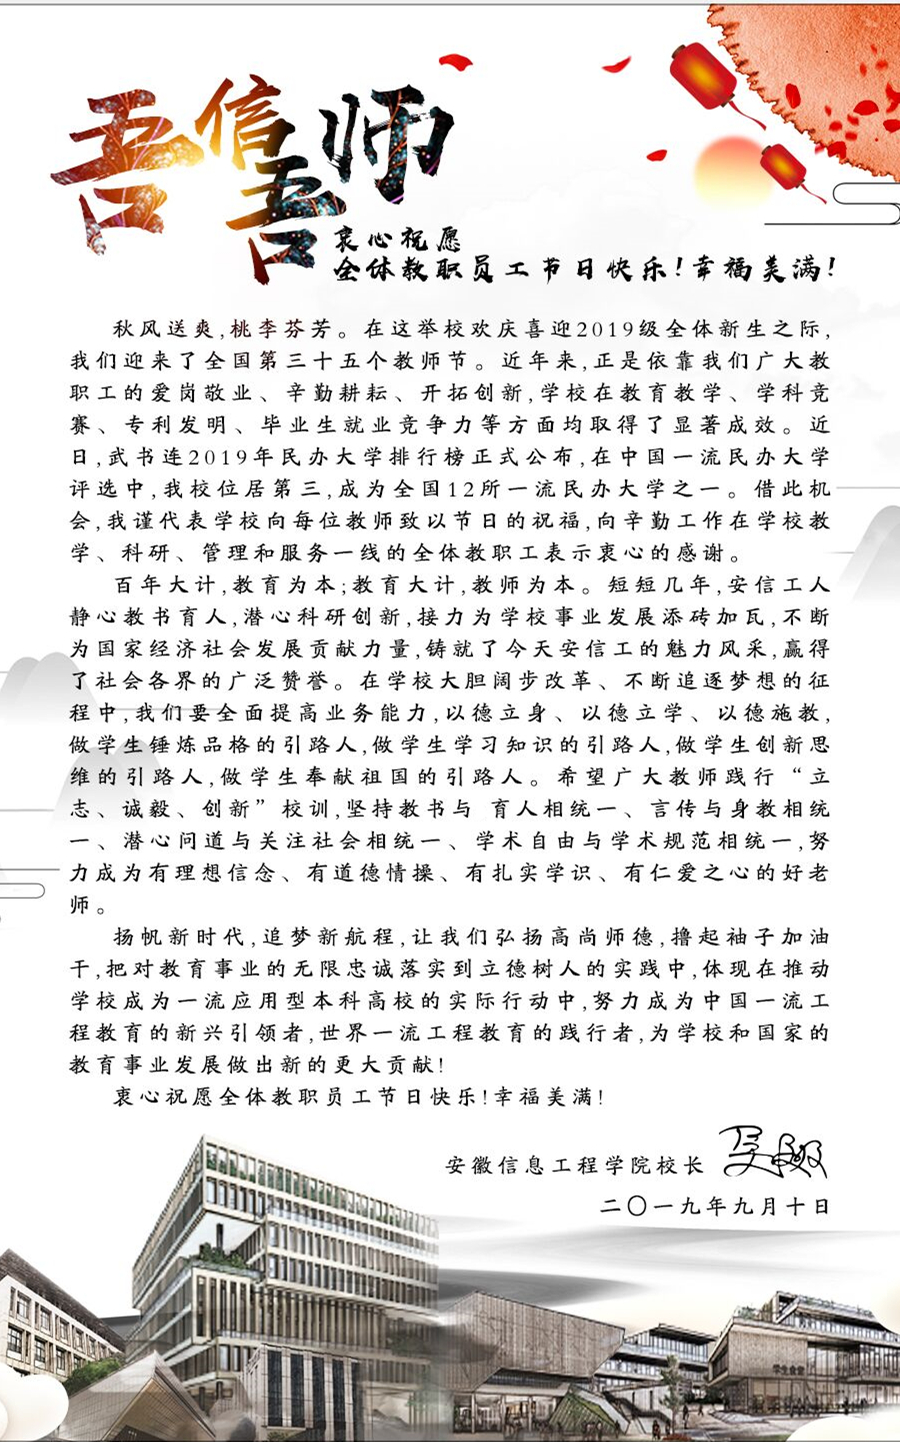 吾信吾师
衷心祝愿
全体教职员工节日快乐!幸福美满!
秋风送爽,桃李芬芳。在这举校欢庆喜迎2019级全体新生之际,
我们迎来了全国第三十五个教师节。近年来,正是依靠我们广大教
职工的爱岗敬业、辛勤耕耘、开拓创新,学校在教育教学、学科竞
赛、专利发明、毕业生就业竞争力等方面均取得了显著成效。近
日,武书连2019年民办大学排行榜正式公布,在中国一流民办大学
评选中,我校位居第三,成为全国12所一流民办大学之一。借此机
会,我谨代表学校向每位教师致以节日的祝福,向辛勤工作在学校教
学、科研、管理和服务一线的全体教职工表示衷心的感谢。
百年大计,教育为本;教育大计,教师为本。短短几年,安信工人
静心教书育人,潜心科研创新,接力为学校事业发展添砖加瓦,不断
为国家经济社会发展贡献力量,铸就了今天安信工的魅力风采,赢得
了社会各界的广泛赞誉。在学校大胆阔步改革、不断追逐梦想的征
程中,我们要全面提高业务能力,以德立身、以德立学、以德施教,
做学生锤炼品格的引路人,做学生学习知识的引路人,做学生创新思
维的引路人,做学生奉献祖国的引路人。希望广大教师践行“立
志、诚毅、创新”校训,坚持教书与 育人相统一、言传与身教相统
一、潜心问道与关注社会相统一、学术自由与学术规范相统一,努
力成为有理想信念、有道德情操、有扎实学识、有仁爱之心的好老
师。
扬帆新时代,追梦新航程,让我们弘扬高尚师德,撸起袖子加油
干,把对教育事业的无限忠诚落实到立德树人的实践中,体现在推动
学校成为一流应用型本科高校的实际行动中,努力成为中国一流工
程教育的新兴引领者,世界一流工程教育的践行者,为学校和国家的
教育事业发展做出新的更大贡献!
衷心祝愿全体教职员工节日快乐!幸福美满!
安徽信息工程学院校长
二〇一九年九月十日